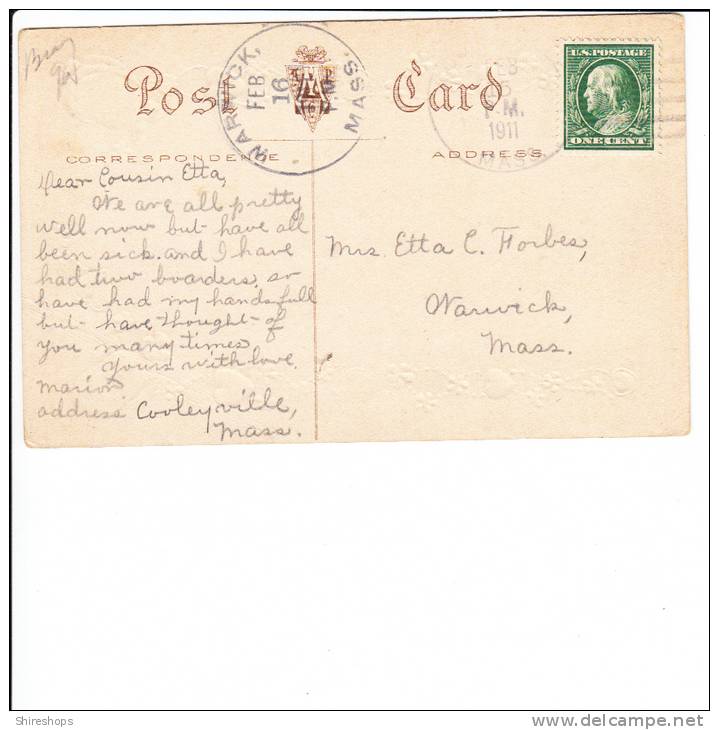 Post Card
WARWICK, MASS.
FEB
16
1911
MASS
U.S. POSTAGE
ONE CENT
CORRESPONDENCE
ADDRESS
Dear Cousin Etta,
We are all pretty
well now but have all
been sick. and I have
had two boarders. so
have had my hands full
but have thought of
you many times
Yours with love.
Marion
address Cooleyville,
Mass.
Mrs. Etta C. Forbes,
Warwick,
Mass.
Shireshops
www.delcampe.net